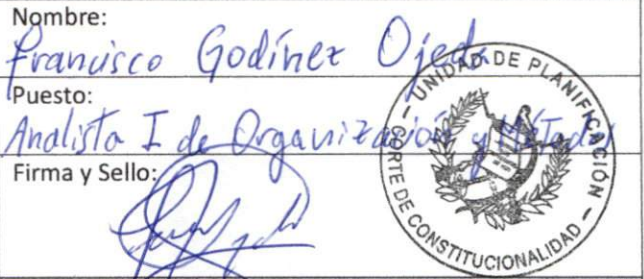 Nombre:
Francisco Godínez Ojeda
Puesto:
Analista I de Organización y Métodos
Firma y Sello:
UNIDAD DE PLANIFICACIÓN
CORTE DE CONSTITUCIONALIDAD